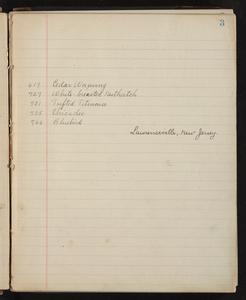 3
619 Cedar Waxwing
727 White-breasted Nuthatch
731 Tufted Titmouse
735 Chickadee
766 Bluebird
Lawrenceville, New Jersey